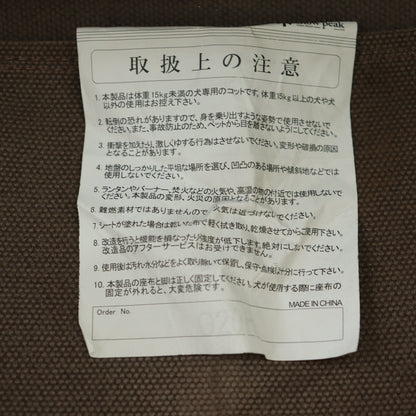 snow peak
取扱上の注意
1. 本製品は体重15kg未満の犬専用のコットです。体重15kg以上の犬や犬
以外の使用はお控え下さい。
2. 転倒の恐れがありますので、身を乗り出すような姿勢で使用させないで
ください。また、事故防止のため、ペットから目を離さないようにしてください。
3. 衝撃を加えたり、激しくゆする行為はさせないでください。変形や破損の原因
となることがあります。
4. 地盤のしっかりした平坦な場所を選び、凹凸のある場所や傾斜地などでは
使用しないでください。
5. ランタンやバーナー、焚火などの火気や、高温の物の付近では使用しないで
ください。本製品の変形、火災の原因となることがあります。
6. 難燃素材ではありませんので、火気は近づけないでください。
7. シートが濡れた場合は乾いた布で軽く拭き取り、乾燥させてからご使用下さい。
8. 改造を行うと機能を損なったり強度が低下します。絶対にしないでください。
改造品のアフターサービスはお受けできません。
9. 使用後は汚れ・水分などをよく取り除いて保管し、保守・点検は十分に行って下さい。
10. 本製品の座布と脚は正しく固定してください。犬が使用する際に座布の
固定が外れると、大変危険です。
MADE IN CHINA
Order No.